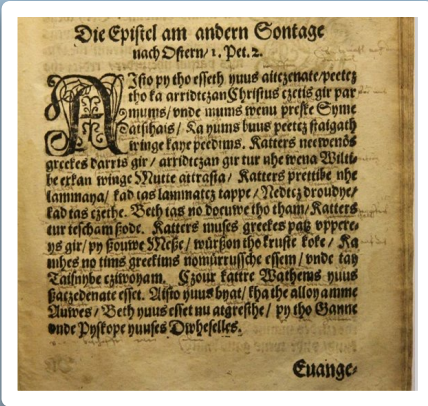 Die Epistel am andern Sontage
nach Ostern/ 1. Pet. 2.
AIsto py tho esseth yuus aitczenate/peetcz
tho ka arridtczan Christus czetis gir par
mums/ vnde mums wenu preske Syme
atsthais/ Ka yums buus peetcz staigath
winge kaye peedims. Katters neewenös
greekes darris gir/ arridtczan gir tur nhe wena Wilti-
be exkan winge Mutte attrasta/ Katters prettibe nhe
lammaya/ kad tas lammatcz tappe/ Nedtcz droudye/
kad tas czethe. Beth tas no docuwe tho tham/ Katters
tur tescham ßode. Katters muses greekes patz vppere-
ys gir/ py ßouwe Meße/ wuerßon tho kruste koke/ Ka
mhes no tims greekims nomürrusche essem/ vnde tay
Taisnybe cziwoyam. Czour kattre Wathems yuus
ßatczedenate esset. Aisto yuus byat/ kha the alloyamme
Auwes/ Beth yuus esset nu atgresthe/ py tho Ganne
vnde Pyskope yuuses Dwheselles.
Euange-